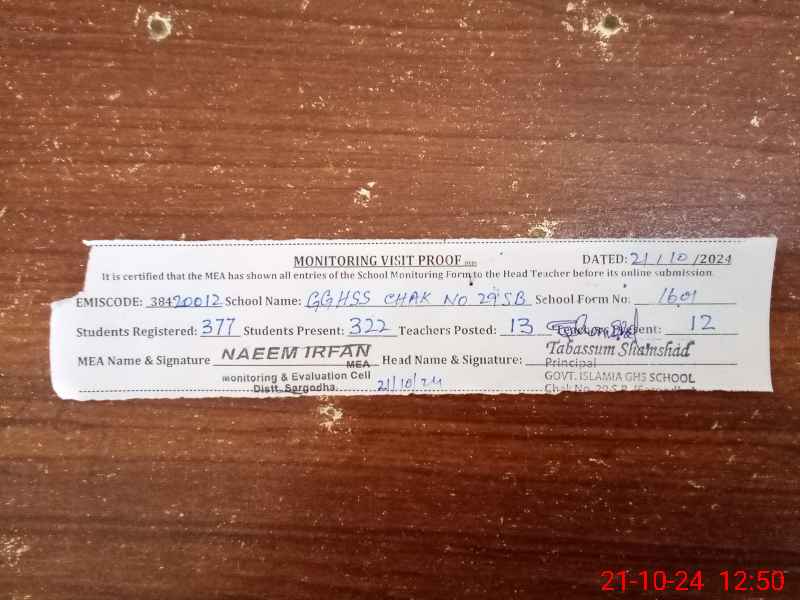 MONITORING VISIT PROOF DATED: 21/10/2024
It is certified that the MEA has shown all entries of the School Monitoring Form to the Head Teacher before its online submission.
EMISCODE: 38420012 School Name: GGHSS CHAK NO 29 SB School Form No: 1601
Students Registered: 377 Students Present: 322 Teachers Posted: 13 Teachers Present: 12
MEA Name & Signature NAEEM IRFAN Head Name & Signature: Tabassum Shamshad
MEA Principal
Monitoring & Evaluation Cell GOVT. ISLAMIA GHS SCHOOL
Distt. Sargodha. 21/10/24 Chak No. 29 S.B.
21-10-24 12:50